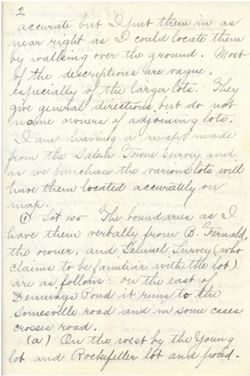 2
accurate but I put them in as
near right as I could locate them
by walking over the ground. Most
of the descriptions are vague,
especially of the larger lots. They
give general directions, but do not
name owners of adjoining lots.
I am having a map made
from the State Town survey and
as we purchase the various lots will
have them located accurately on
map.
① Lot 100. The boundaries as I
have them verbally from B. Fernald,
the owner, and Lemuel Survey (who
claims to be familiar with the lot)
are as follows: on the east of
Denning's Pond it runs to the
Somesville road and in some cases
crosses road.
(a) On the west by the Young
lot and Rockefeller lot and pond.